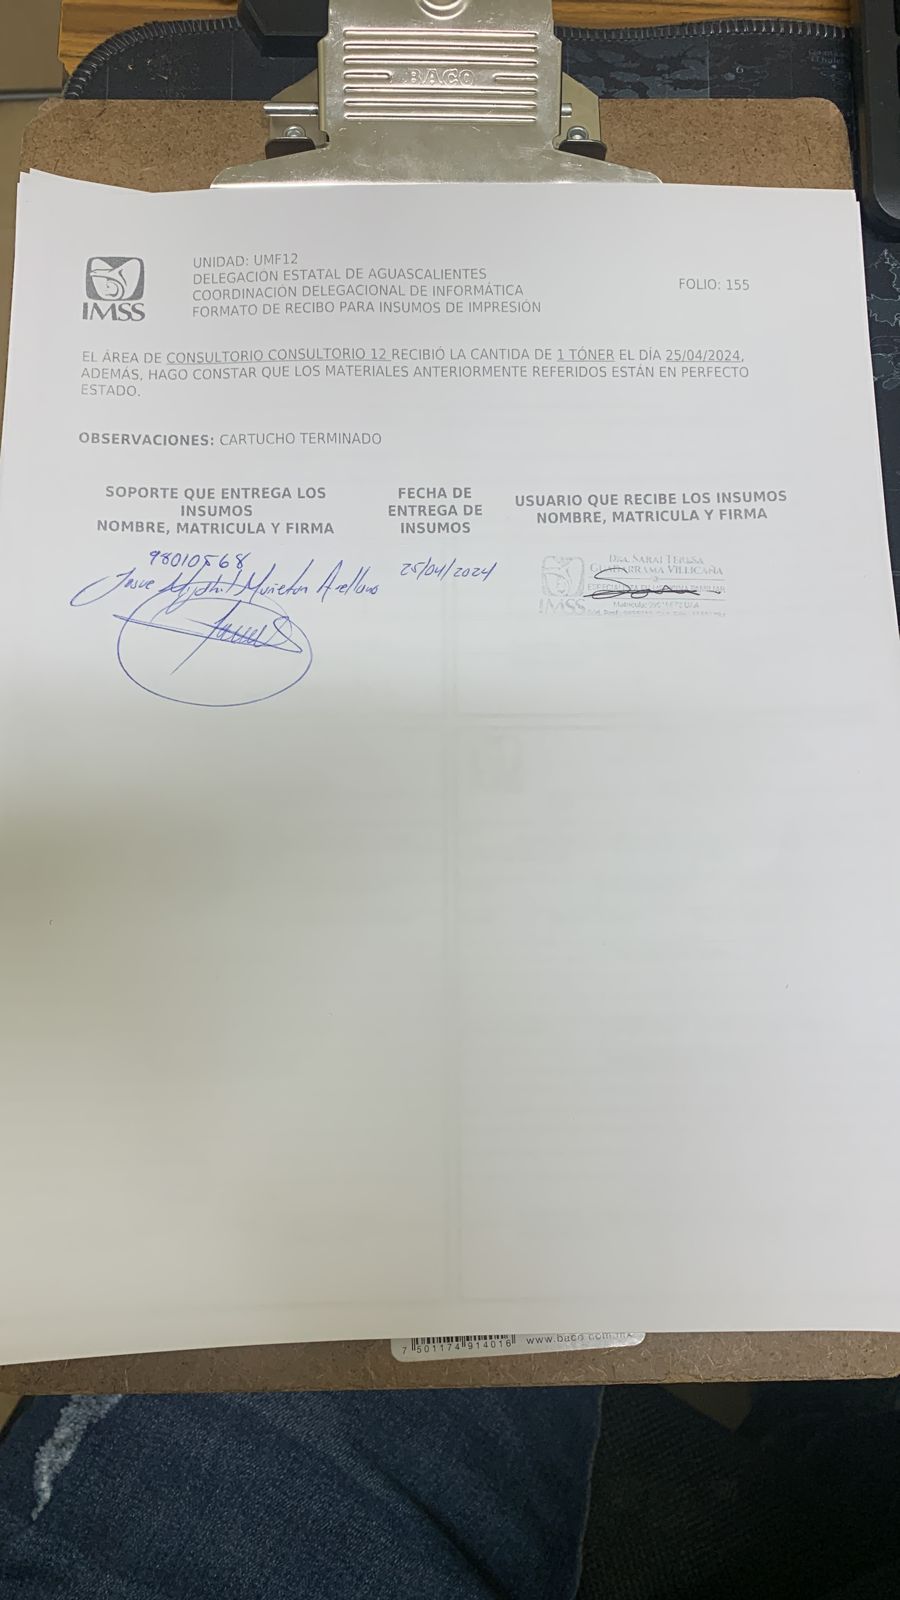 BACO
UNIDAD: UMF12
DELEGACIÓN ESTATAL DE AGUASCALIENTES
COORDINACIÓN DELEGACIONAL DE INFORMÁTICA
FORMATO DE RECIBO PARA INSUMOS DE IMPRESIÓN
IMSS
FOLIO: 155
EL ÁREA DE CONSULTORIO CONSULTORIO 12 RECIBIÓ LA CANTIDA DE 1 TÓNER EL DÍA 25/04/2024,
ADEMÁS, HAGO CONSTAR QUE LOS MATERIALES ANTERIORMENTE REFERIDOS ESTÁN EN PERFECTO
ESTADO.
OBSERVACIONES: CARTUCHO TERMINADO
SOPORTE QUE ENTREGA LOS
INSUMOS
NOMBRE, MATRICULA Y FIRMA
FECHA DE
ENTREGA DE
INSUMOS
USUARIO QUE RECIBE LOS INSUMOS
NOMBRE, MATRICULA Y FIRMA
98010568
Josue Muñeton Arellano
25/04/2024
DRA. SARAI TERESA
GUADARRAMA VILLICAÑA
ESPECIALISTA EN MEDICINA FAMILIAR
IMSS
7 501174 914016
www.baco.com.mx